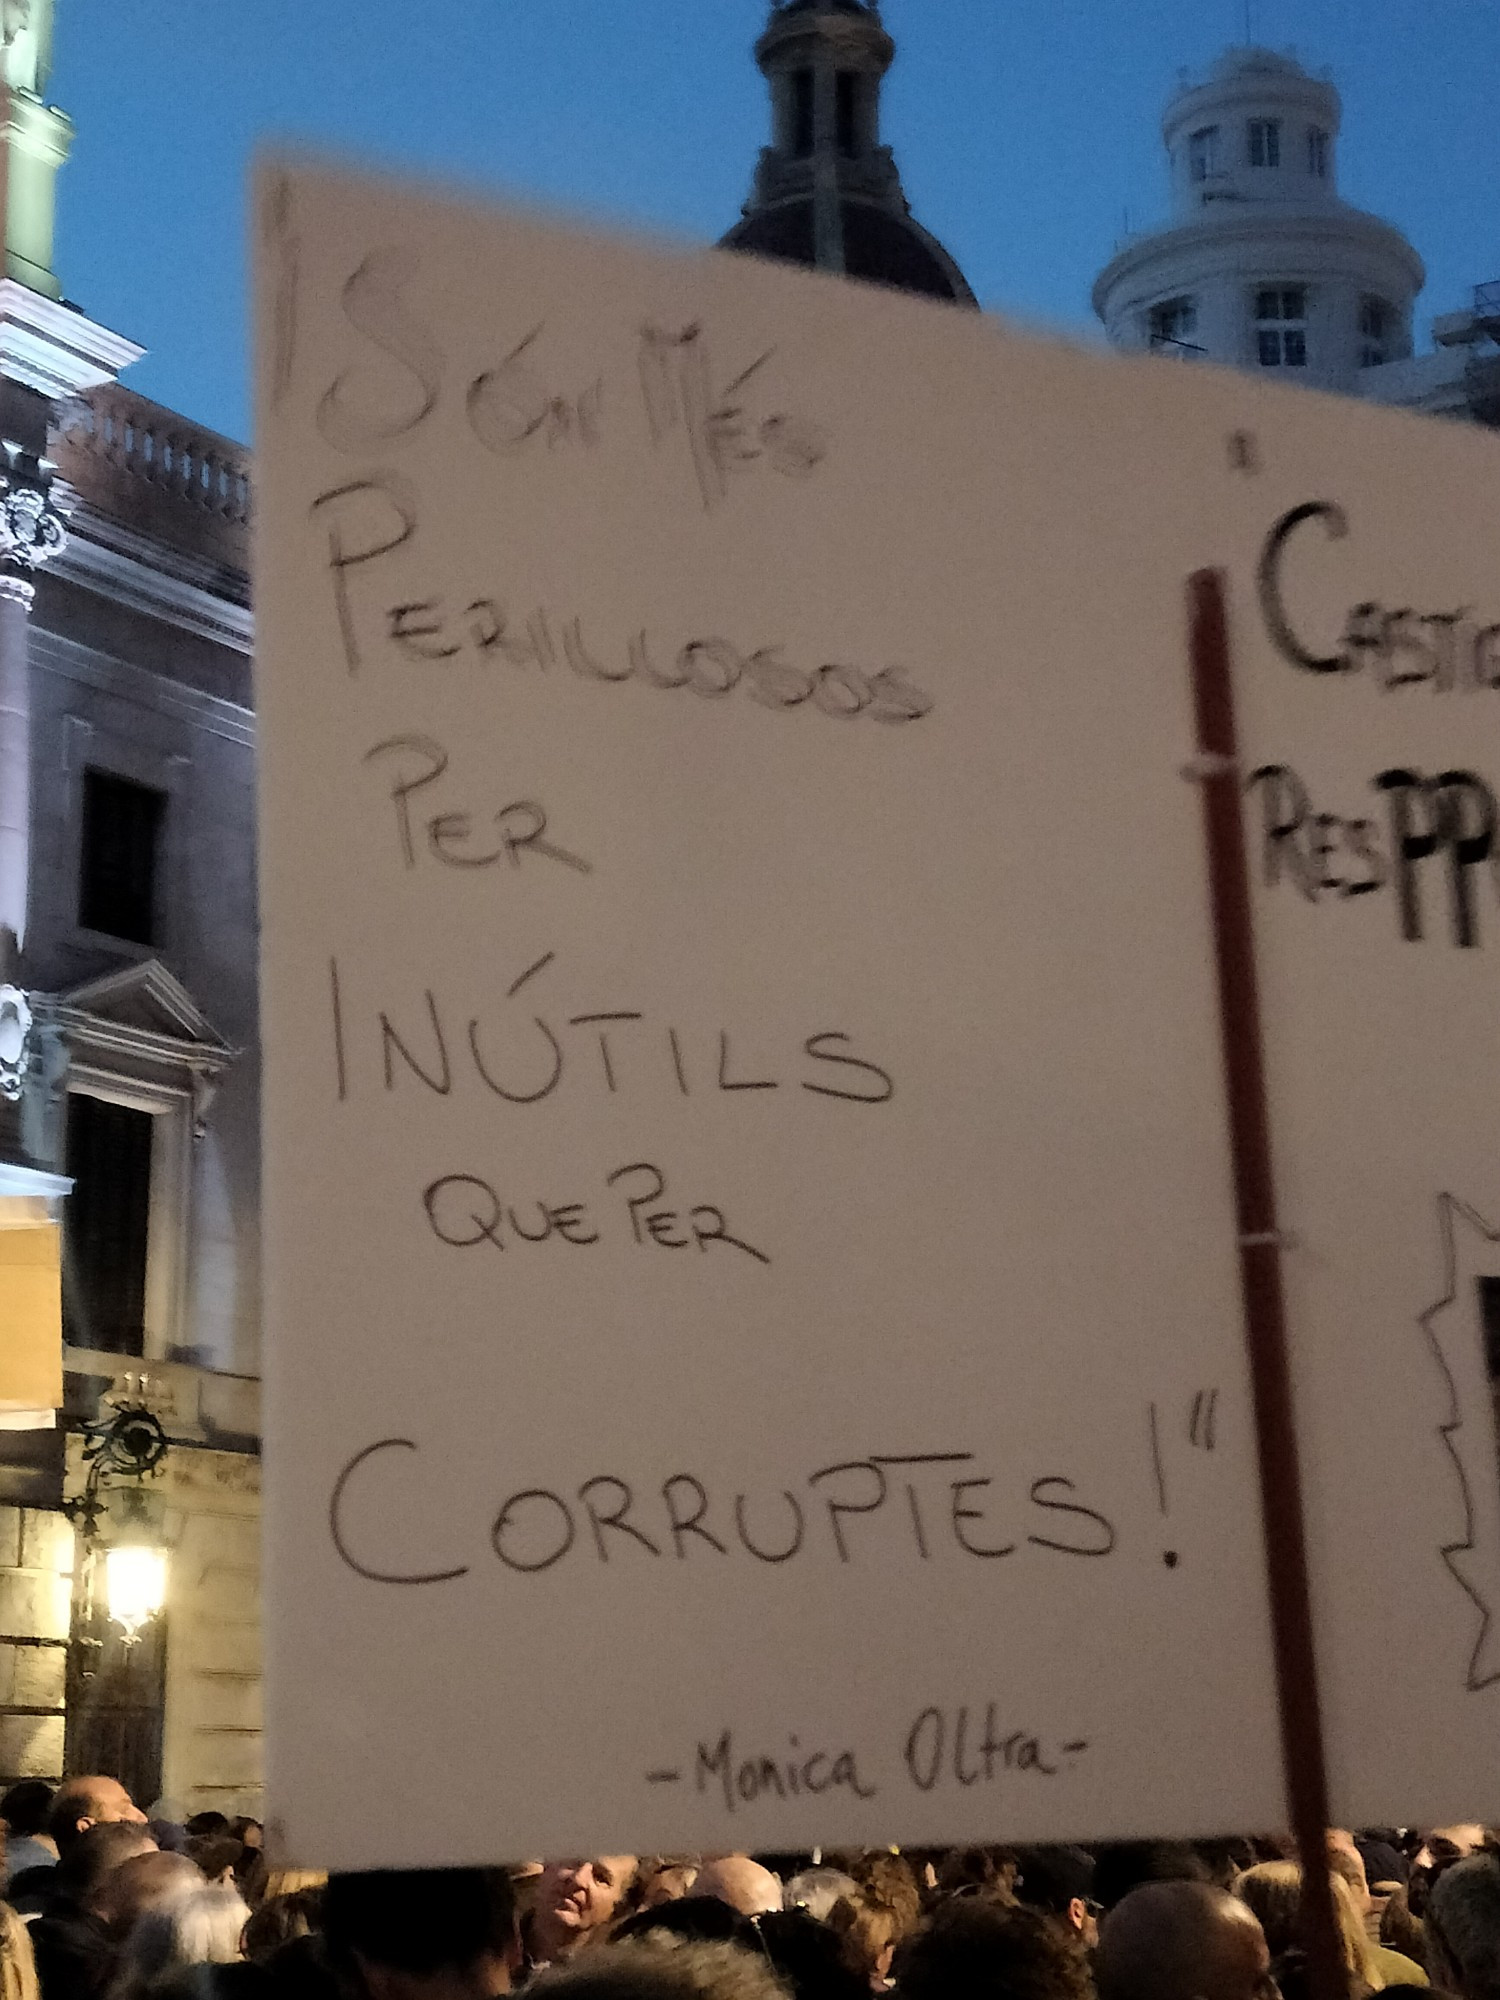 "Són Més
Perillosos
Per
Inútils
que Per
Corruptes!"
-Monica Oltra-
Castig
ResPP